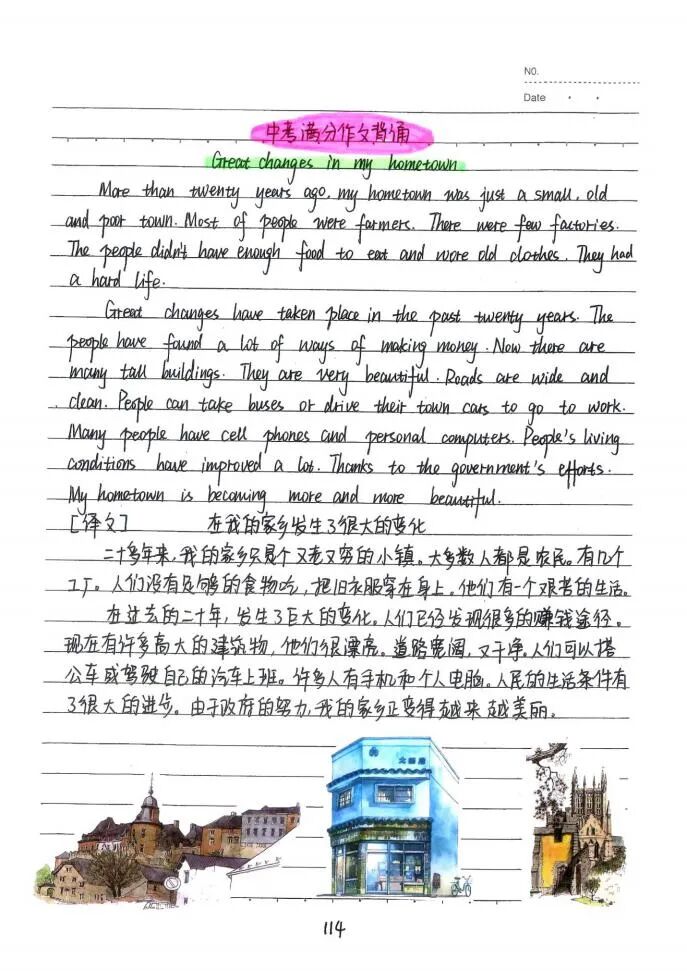 NO.
Date
中考满分作文背诵
Great changes in my hometown
More than twenty years ago, my hometown was just a small, old
and poor town. Most of people were farmers. There were few factories.
The people didn't have enough food to eat and wore old clothes. They had
a hard life.
Great changes have taken place in the past twenty years. The
people have found a lot of ways of making money. Now there are
many tall buildings. They are very beautiful. Roads are wide and
clean. People can take buses or drive their town cars to go to work.
Many people have cell phones and personal computers. People's living
conditions have improved a lot. Thanks to the government's efforts.
My hometown is becoming more and more beautiful.
[译文] 在我的家乡发生了很大的变化
二十多年来,我的家乡只是个又老又穷的小镇。大多数人都是农民。有几个
工厂。人们没有足够的食物吃,把旧衣服穿在身上。他们有一个艰苦的生活。
在过去的二十年,发生了巨大的变化。人们已经发现很多的赚钱途径。
现在有许多高大的建筑物,他们很漂亮。道路宽阔,又干净。人们可以搭
公车或驾驶自己的汽车上班。许多人有手机和个人电脑。人民的生活条件有
了很大的进步。由于政府的努力,我的家乡正变得越来越美丽。
114